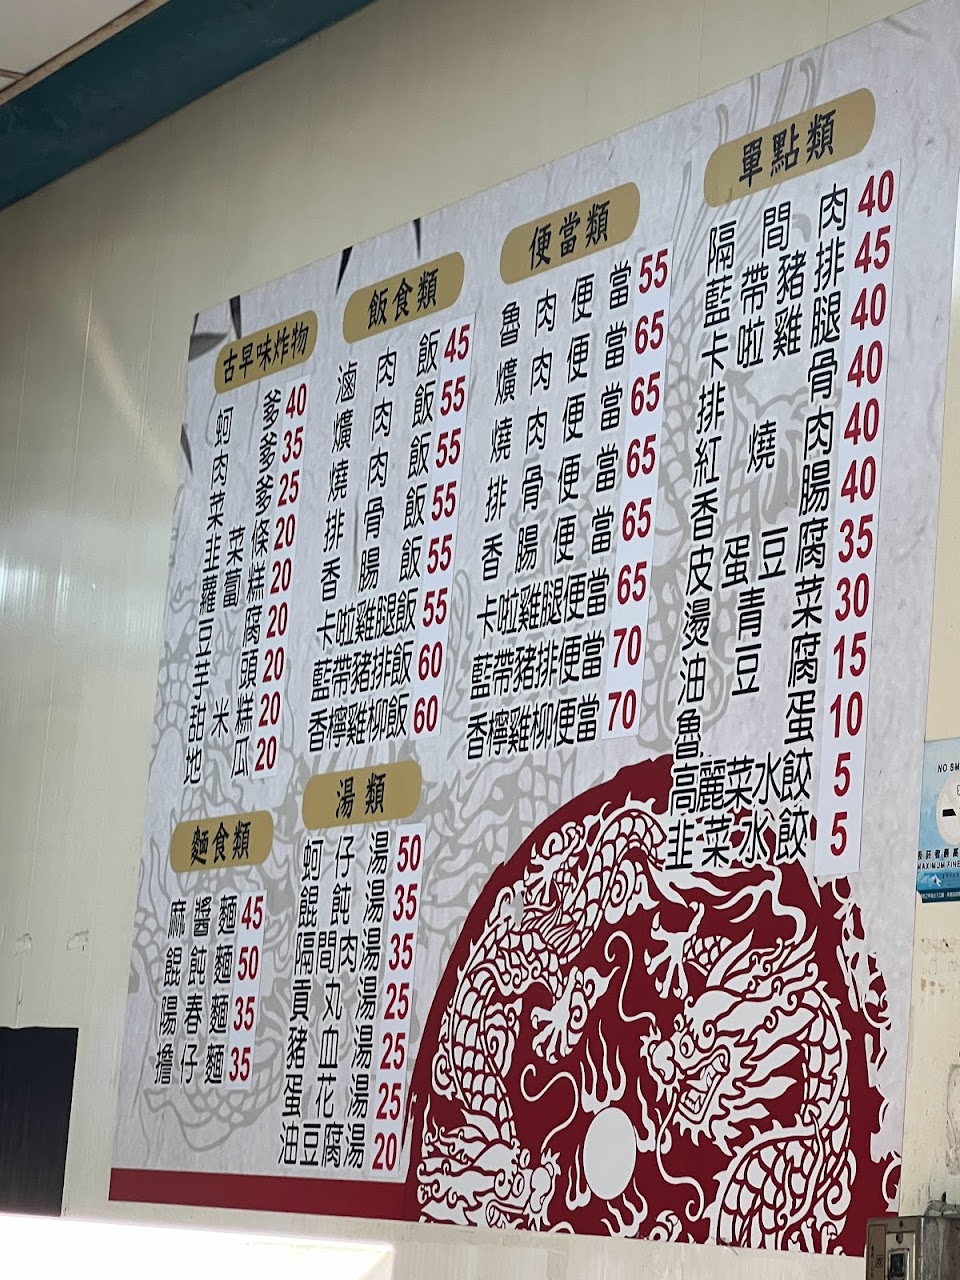 古早味炸物
蚵爹 40
肉爹 35
菜爹 25
韭菜條 20
蘿蔔糕 20
豆腐 20
芋頭 20
甜米糕 20
地瓜 20
飯食類
滷肉飯 45
爌肉飯 55
燒肉飯 55
排骨飯 55
香腸飯 55
卡啦雞腿飯 55
藍帶豬排飯 60
香檸雞柳飯 60
便當類
魯肉便當 55
爌肉便當 65
燒肉便當 65
排骨便當 65
香腸便當 65
卡啦雞腿便當 65
藍帶豬排便當 70
香檸雞柳便當 70
單點類
隔間肉 40
藍帶豬排 45
卡啦雞腿 40
排骨 40
紅燒肉 40
香腸 40
皮蛋豆腐 35
燙青菜 30
油豆腐 15
魯蛋 10
高麗菜水餃 5
韭菜水餃 5
麵食類
麻醬麵 45
餛飩麵 50
陽春麵 35
擔仔麵 35
湯類
蚵仔湯 50
餛飩湯 35
隔間肉湯 35
貢丸湯 25
豬血湯 25
蛋花湯 25
油豆腐湯 20
NO SM
MAXIMUM FINE